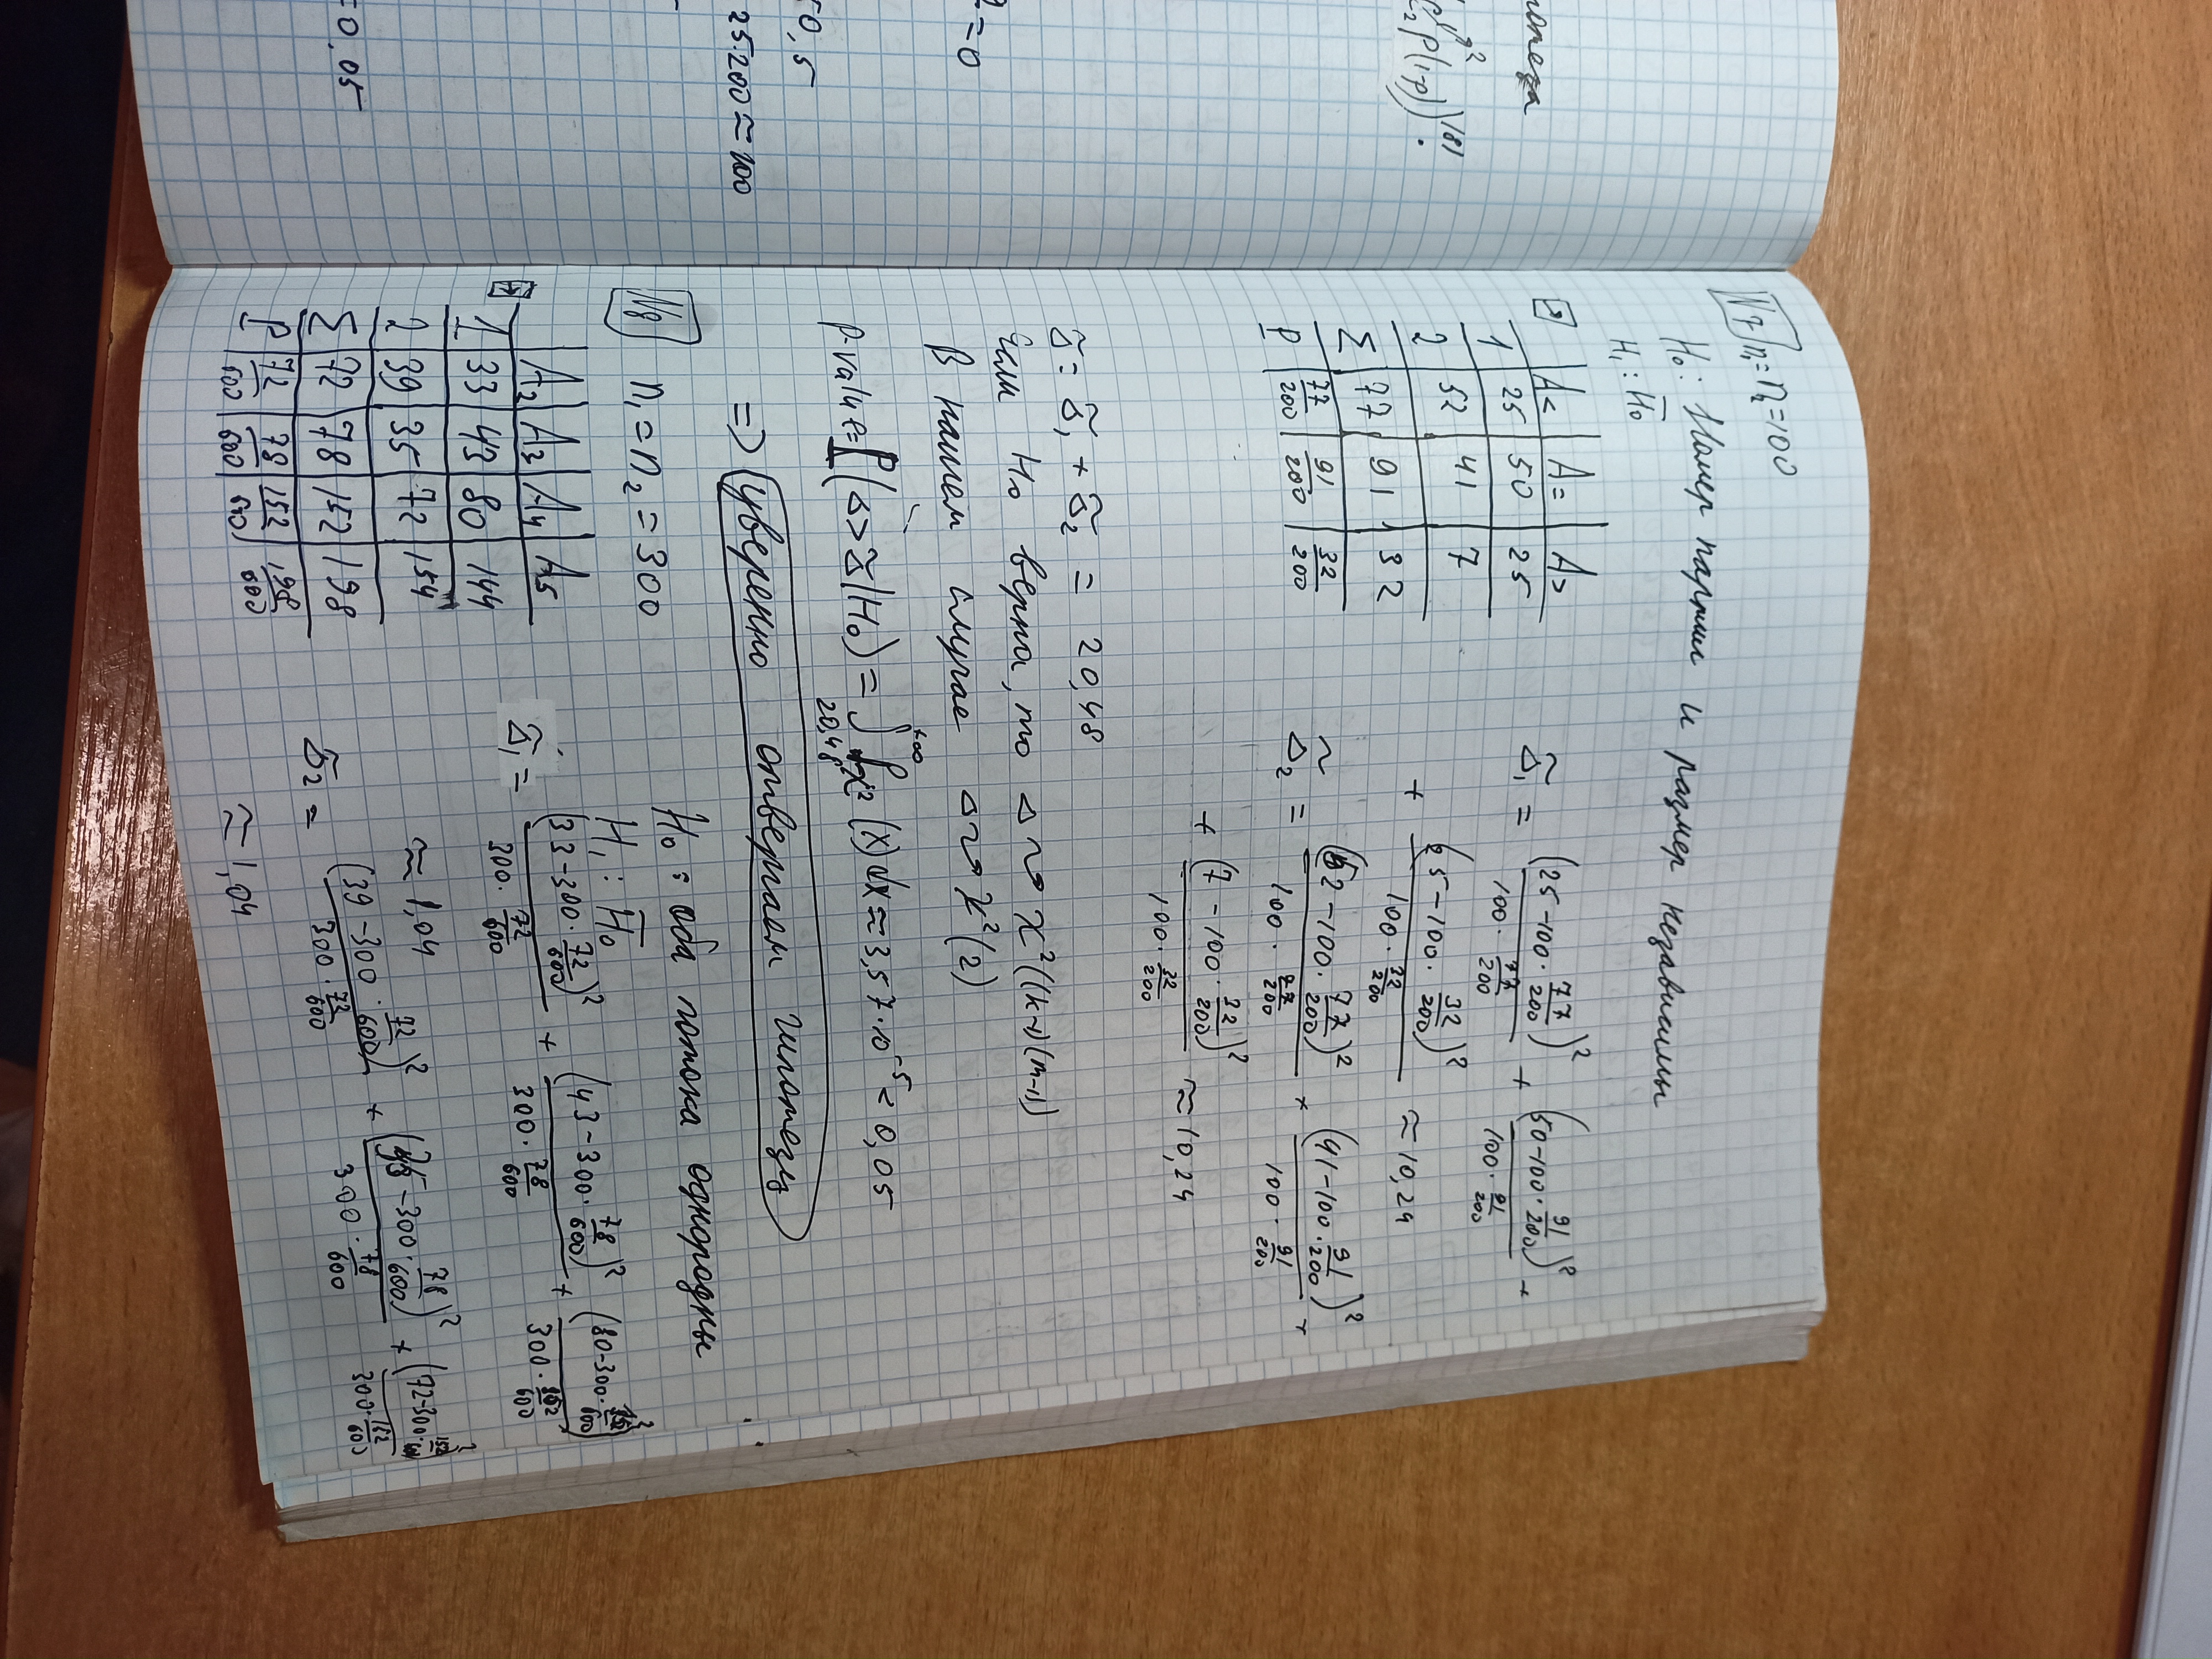 N7 n₁=n₂=100
H₀: Номер партии и размер независимы
H₁: H̅₀
A< A= A>
1 25 50 25
2 52 41 7
Σ 77 91 32
P 77/200 91/200 32/200
Δ̃₁ = (25-100·77/200)²/(100·77/200) + (50-100·91/200)²/(100·91/200) +
+ (25-100·32/200)²/(100·32/200) ≈ 10,24
Δ̃₂ = (52-100·77/200)²/(100·77/200) + (41-100·91/200)²/(100·91/200) +
+ (7-100·32/200)²/(100·32/200) ≈ 10,24
Δ̃ = Δ̃₁ + Δ̃₂ = 20,48
Если H₀ верна, то Δ ⤳ χ²((k-1)(m-1))
В нашем случае Δ ⤳ χ²(2)
p-value = P(Δ > Δ̃ | H₀) = ∫_{20,48}^{+∞} f_{χ²}(x)dx ≈ 3,57·10⁻⁵ < 0,05
=> уверенно отвергаем гипотезу
N8 n₁=n₂=300
H₀: оба потока однородны
H₁: H̅₀
A₂ A₃ A₄ A₅
1 33 43 80 144
2 39 35 72 154
Σ 72 78 152 198
P 72/600 78/600 152/600 198/600
Δ̃₁ = (33-300·72/600)²/(300·72/600) + (43-300·78/600)²/(300·78/600) + (80-300·152/600)²/(300·152/600)
≈ 1,04
Δ̃₂ = (39-300·72/600)²/(300·72/600) + (35-300·78/600)²/(300·78/600) + (72-300·152/600)²/(300·152/600)
≈ 1,04
p(1-p))¹⁸¹.
=0
25·200≈100
=0,05